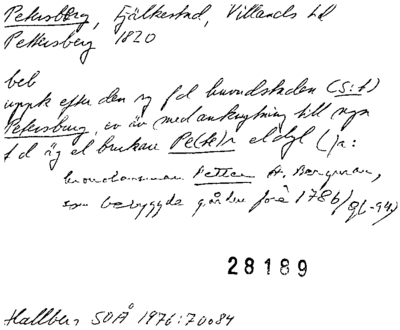 Petersborg, Fjälkestad, Villands hd
Pettersberg 1820
beb
uppk efter den ry f d huvudstaden (S:t)
Petersburg, ev äv med anknytning till ngn
t d äg el brukare Pe(tte)r el dyl
kronolänsman Petter A. Bergman,
som bebyggde gården före 1786
28189
Hallberg SOÅ 1976:70 o 84